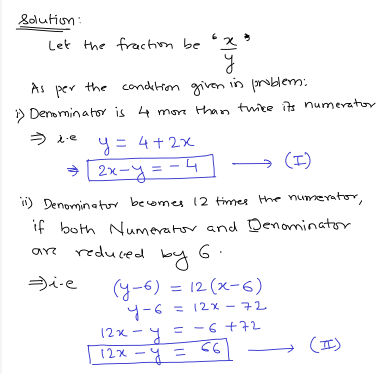 Solution:
Let the fraction be "x/y"
As per the condition given in problem:
i) Denominator is 4 more than twice its numerator
⇒ i.e y = 4+2x
⇒ 2x-y = -4 ⟶ (I)
ii) Denominator becomes 12 times the numerator,
if both Numerator and Denominator
are reduced by 6.
⇒ i-e (y-6) = 12(x-6)
y-6 = 12x-72
12x-y = -6+72
12x-y = 66 ⟶ (II)